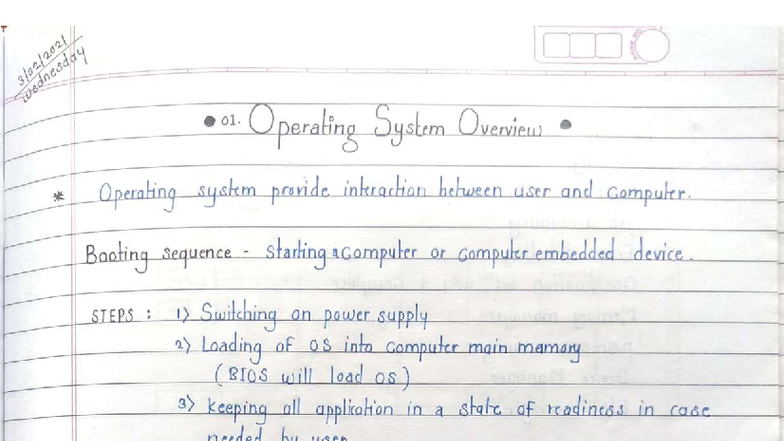 3/02/2021
Wednesday
PAGE NO.
● 01. Operating System Overview ●
* Operating system provide interaction between user and computer.
Booting sequence - Starting a computer or computer embedded device.
STEPS : 1) Switching on power supply
2) Loading of OS into computer main mamory
(BIOS will load OS)
3) keeping all application in a state of readiness in case
needed by user